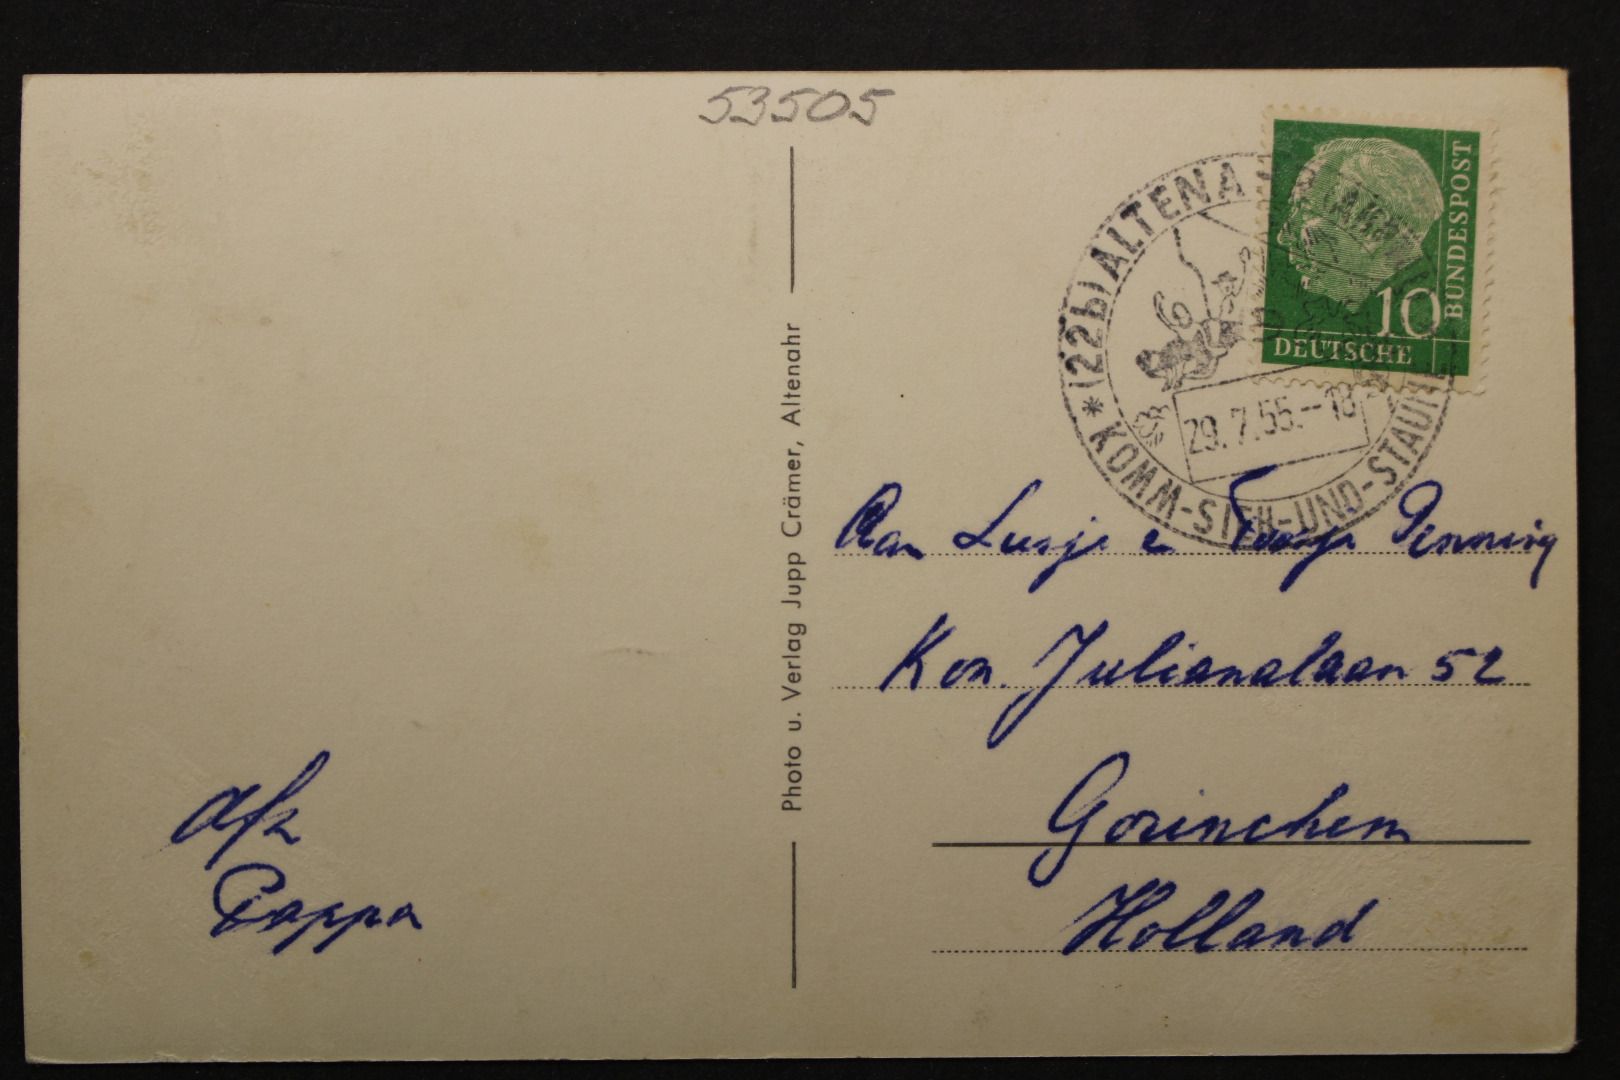 53505
(22b) ALTENA
KOMM-SIEH-UND-STAUNE
29.7.55.--18
10
DEUTSCHE
BUNDESPOST
Photo u. Verlag Jupp Crämer, Altenahr
Aan Lusje e Toosje Penning
Kon. Julianalaan 52
Gorinchem
Holland
Afz
Pappa